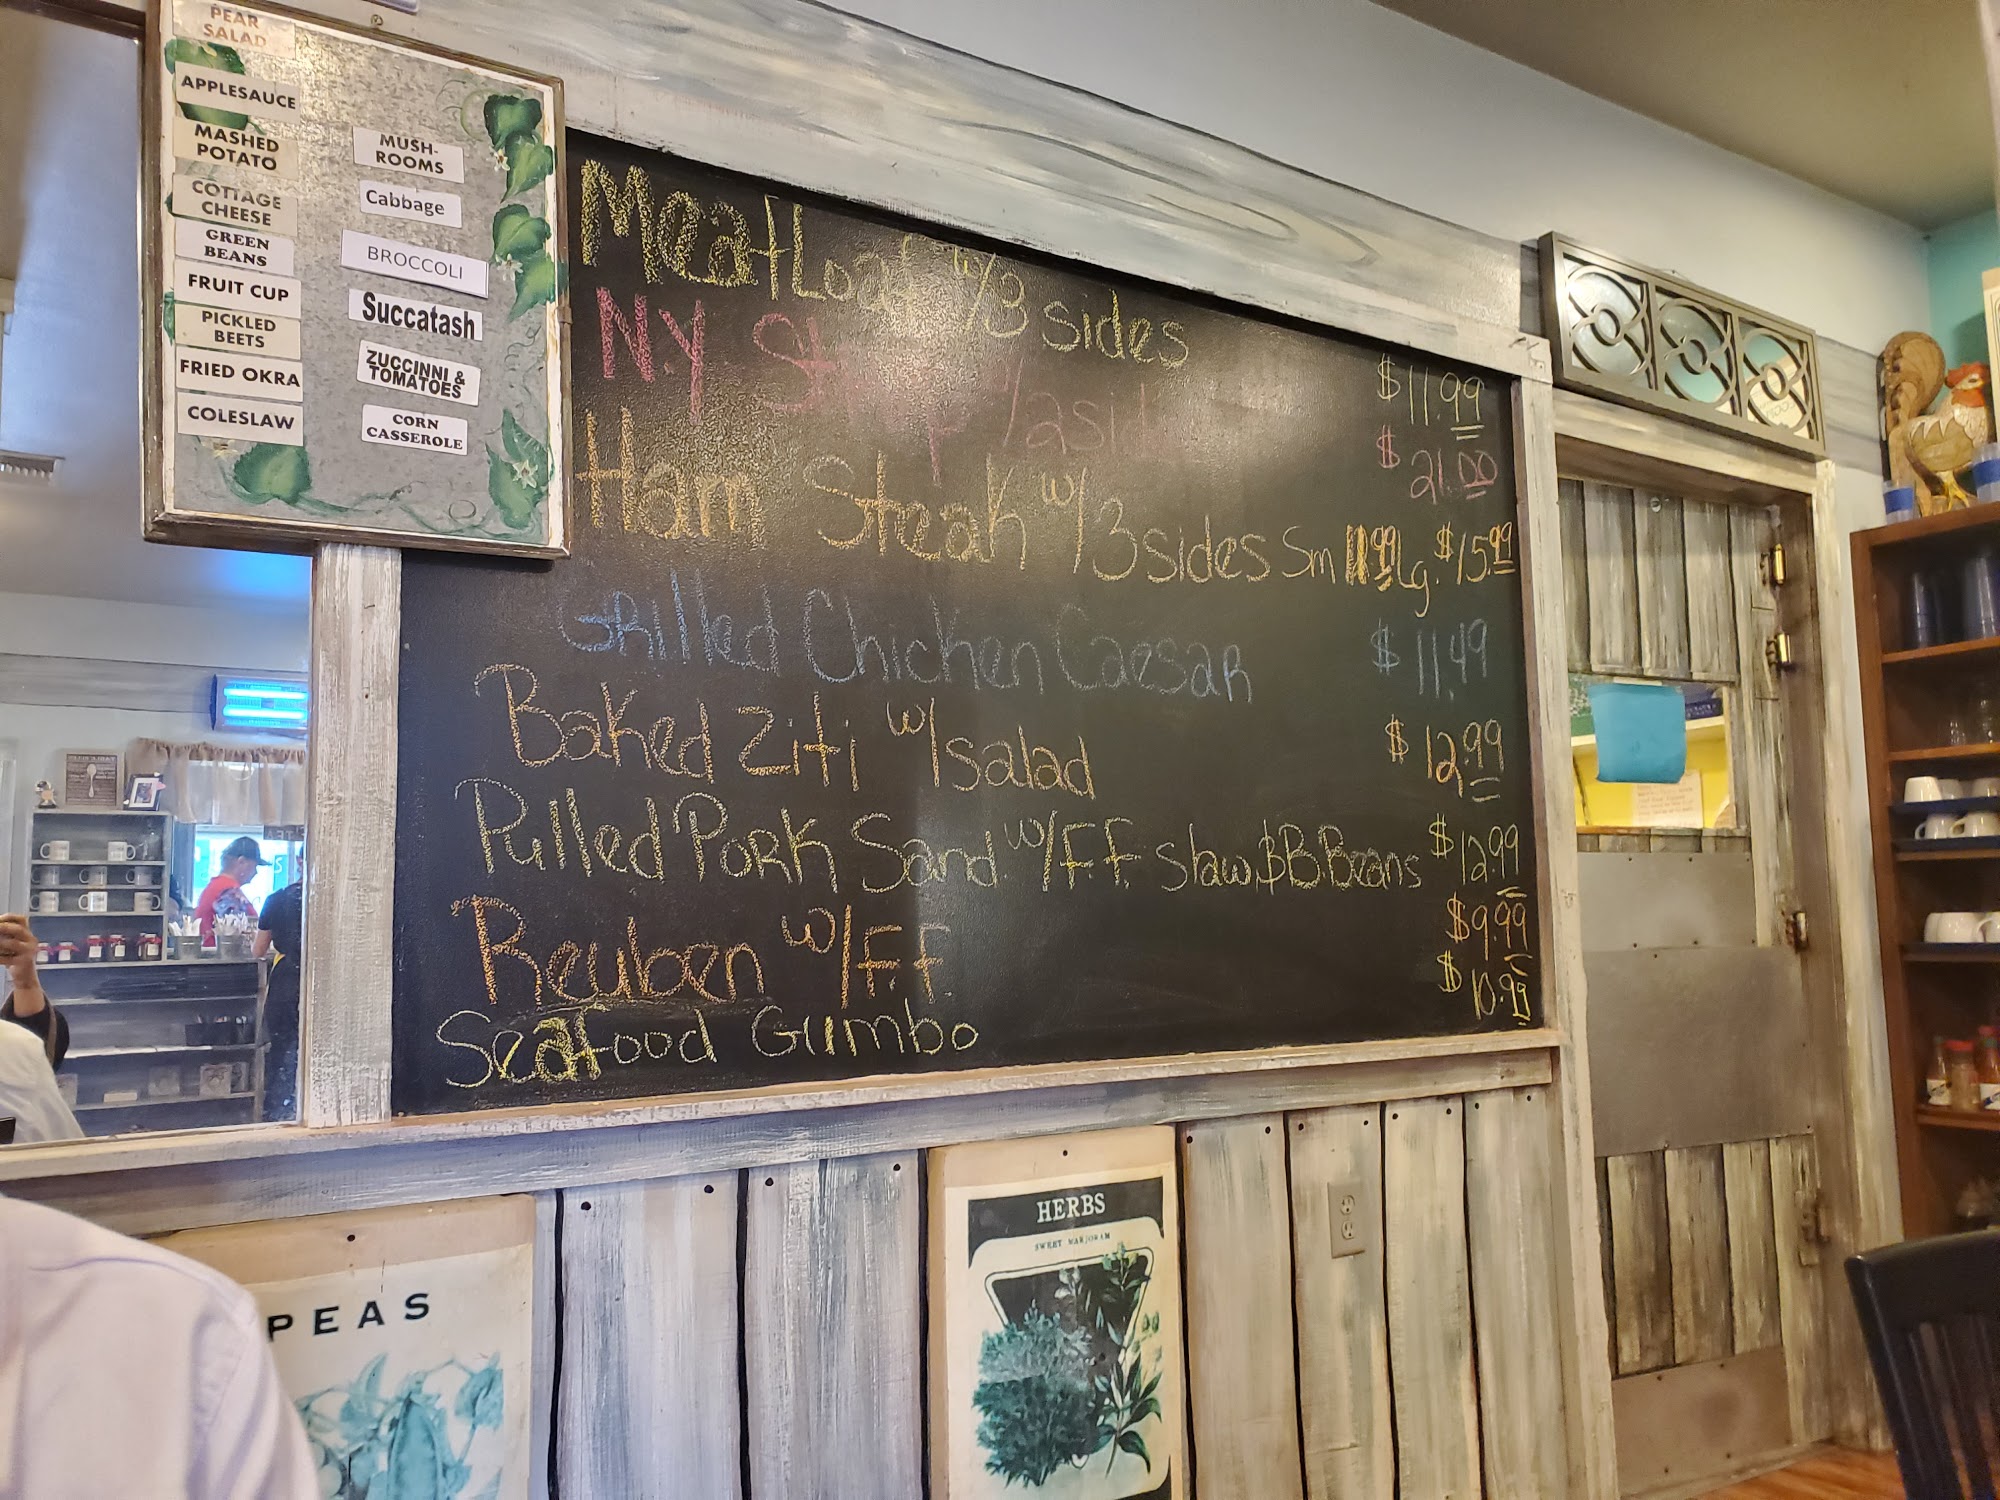 PEAR
SALAD
APPLESAUCE
MASHED
POTATO
COTTAGE
CHEESE
GREEN
BEANS
FRUIT CUP
PICKLED
BEETS
FRIED OKRA
COLESLAW
MUSH-
ROOMS
Cabbage
BROCCOLI
Succatash
ZUCCINNI &
TOMATOES
CORN
CASSEROLE
MeatLoaf w/3 sides $11.99
N.Y. w/2 $21.00
Ham Steak w/3 sides Sm 11.99 Lg. $15.99
Grilled Chicken Caesar $11.49
Baked Ziti w/salad $12.99
Pulled Pork Sand. w/F.F. slaw, $B.Beans $12.99
Reuben w/F.F $9.99
Seafood Gumbo $10.99
PEAS
HERBS
SWEET MARJORAM